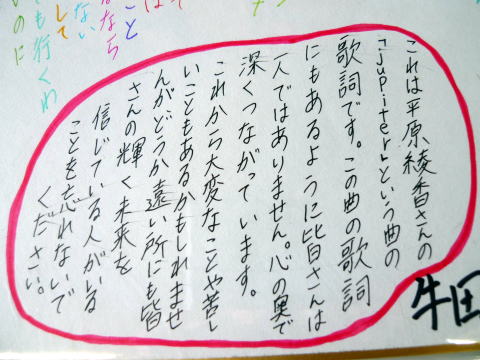 は
こと
るなら
ない
して
も行くわ
いのに
これは平原綾香さんの
「jupiter」という曲の
歌詞です。この曲の歌詞
にもあるように皆さんは
一人ではありません。心の奥で
深くつながっています。
これから大変なことや苦し
いこともあるかもしれませ
んがどうか遠い所にも皆
さんの輝く未来を
信じている人がいる
ことを忘れないで
ください。
牛田